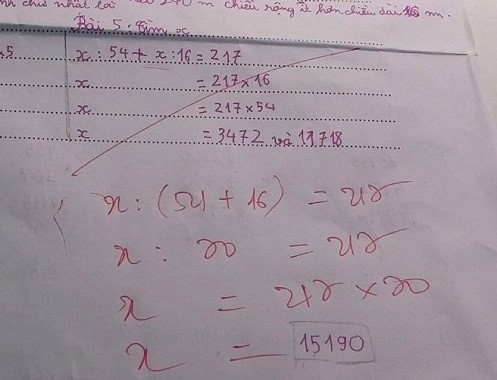 chữ nhật là 240 m chiều rộng ít hơn chiều dài m.
Bài 5. Tìm x
5 x : 54 + x : 16 = 217
x = 217 x 16
x = 217 x 54
x = 3472 và 11718
x : (54 + 16) = 217
x : 70 = 217
x = 217 x 70
x = 15190